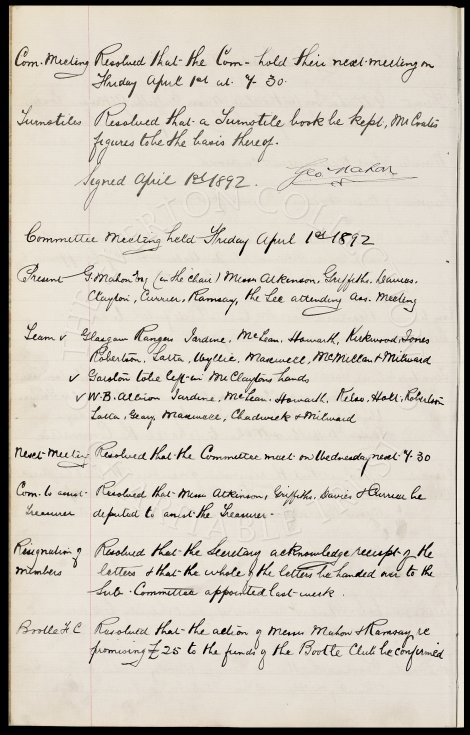 Com. Meeting Resolved that the Com- hold their next meeting on
Friday April 1st at 7-30.
Turnstiles Resolved that a Turnstile book be kept, Mr Coates
figures to be the basis thereof.
Signed April 1st 1892. Geo Mahon
Committee Meeting held Friday April 1st 1892
Present G. Mahon Esq (in the chair) Messrs Atkinson, Griffiths, Davies,
Clayton, Currier, Ramsay, the Sec attending Ass. Meeting
Team v Glasgow Rangers Jardine, McLean, Howarth, Kirkwood, Jones
Robertson, Latta, Wyllie, Maxwell, McMillan & Milward
v Garston to be left in Mr Claytons hands
v W.B. Albion Jardine, McLean, Howarth, Kelso, Holt, Robertson
Latta, Geary, Maxwell, Chadwick & Milward
Next Meeting Resolved that the Committee meet on Wednesday next 7-30
Com. to assist Resolved that Messrs Atkinson, Griffiths, Davies & Currier be
Treasurer deputed to assist the Treasurer -
Resignation of Resolved that the Secretary acknowledge receipt of the
members letters & that the whole of the letters be handed over to the
Sub-Committee appointed last week.
Bootle F C Resolved that the action of Messrs Mahon & Ramsay, re
promising £25 to the funds of the Bootle Club be confirmed